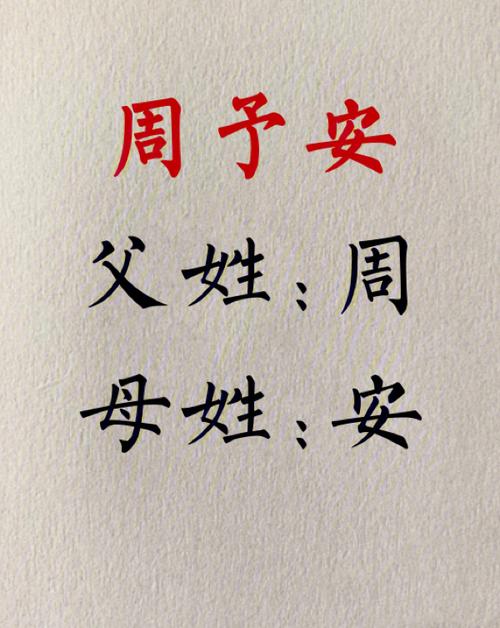 周予安
父姓：周
母姓：安